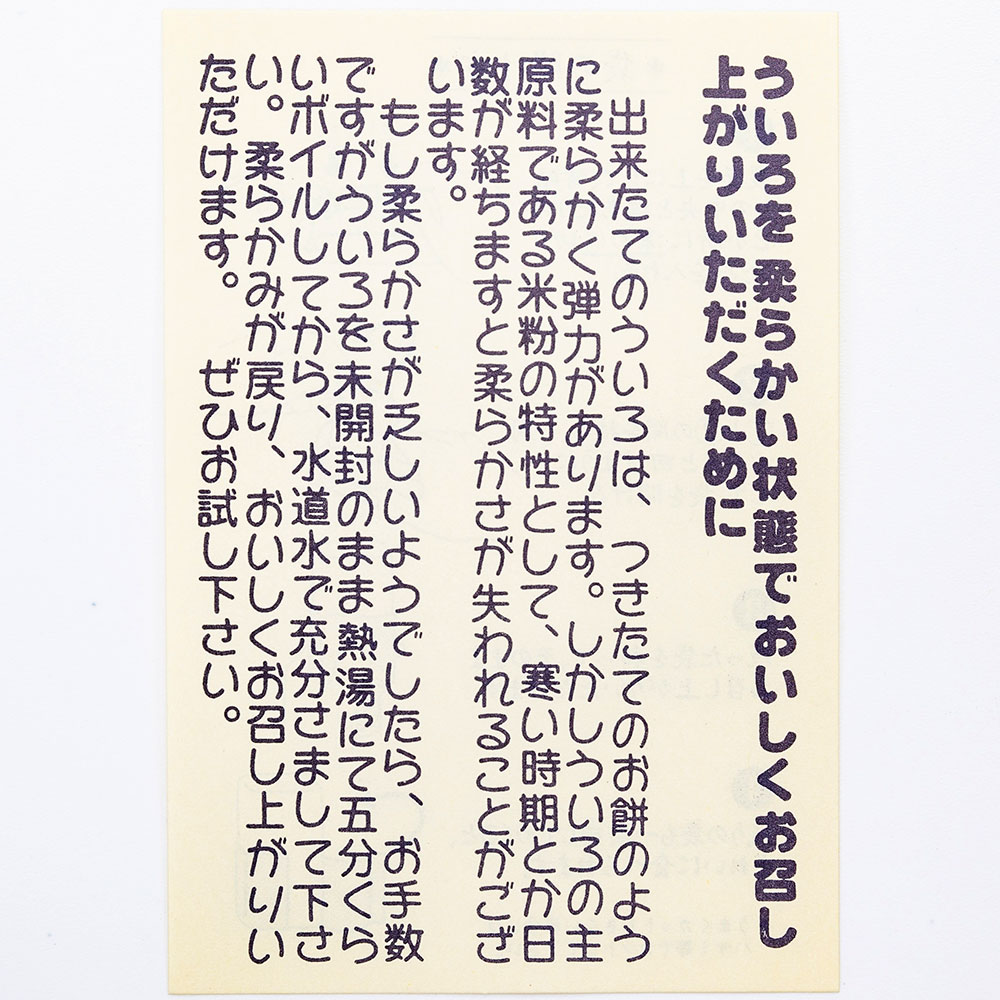 ういろを柔らかい状態でおいしくお召し
上がりいただくために
出来たてのういろは、つきたてのお餅のよう
に柔らかく弾力があります。しかしういろの主
原料である米粉の特性として、寒い時期とか日
数が経ちますと柔らかさが失われることがござ
います。
もし柔らかさが乏しいようでしたら、お手数
ですがういろを未開封のまま熱湯にて五分くら
いボイルしてから、水道水で充分さまして下さ
い。柔らかみが戻り、おいしくお召し上がりい
ただけます。 ぜひお試し下さい。